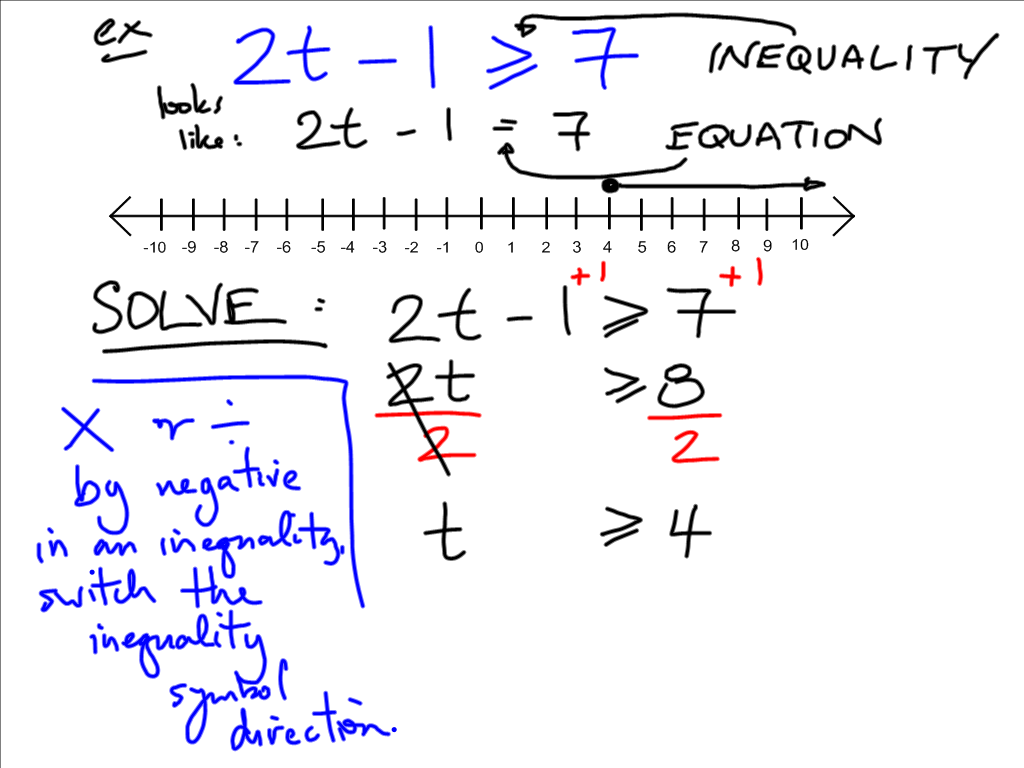 ex 2t - 1 ⩾ 7 INEQUALITY
looks
like: 2t - 1 = 7 EQUATION
-10 -9 -8 -7 -6 -5 -4 -3 -2 -1 0 1 2 3 4 5 6 7 8 9 10
+1 +1
SOLVE : 2t - 1 ⩾ 7
2t ⩾ 8
2 2
t ⩾ 4
X or ÷
by negative
in an inequality,
switch the
inequality
symbol
direction.